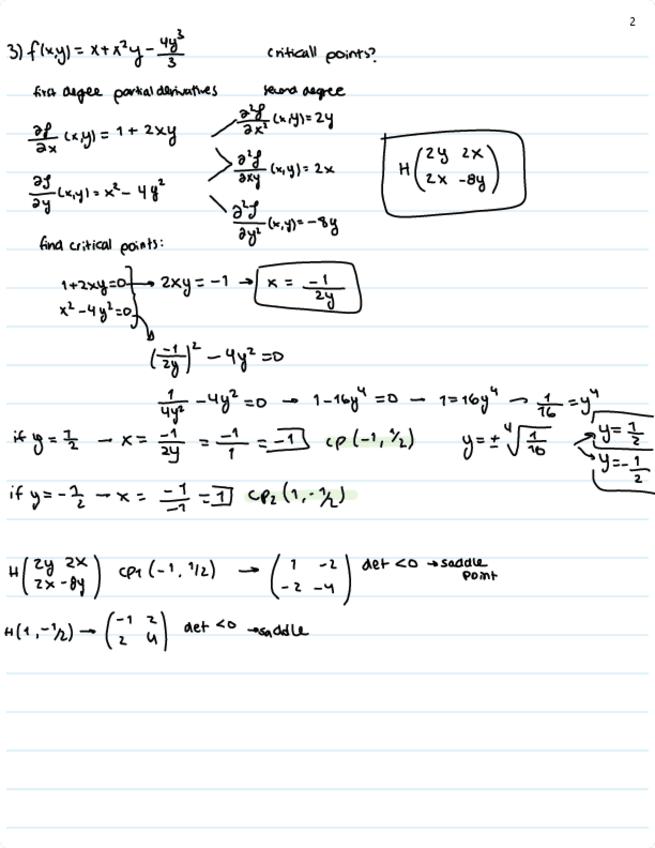 2
3) f(x,y) = x + x²y - 4y³/3 criticall points?
first degree partial derivatives second degree
∂f/∂x (x,y) = 1 + 2xy
∂f/∂y (x,y) = x² - 4y²
∂²f/∂x² (x,y) = 2y
∂²f/∂xy (x,y) = 2x
∂²f/∂y² (x,y) = -8y
H (2y 2x
2x -8y)
find critical points:
1+2xy=0 → 2xy = -1 → x = -1/2y
x² - 4y² = 0
(-1/2y)² - 4y² = 0
1/4y² - 4y² = 0 → 1 - 16y⁴ = 0 – 1 = 16y⁴ → 1/16 = y⁴
if y = 1/2 → x = -1/2y = -1/1 = -1 cp (-1, 1/2) y = ± ⁴√(1/16) y = 1/2
y = -1/2
if y = -1/2 → x = -1/-1 = 1 cp₂ (1, -1/2)
H (2y 2x
2x -8y) cp₁ (-1, 1/2) → (1 -2
-2 -4) det <0 → saddle
point
H(1, -1/2) → (-1 2
2 4) det <0 → saddle